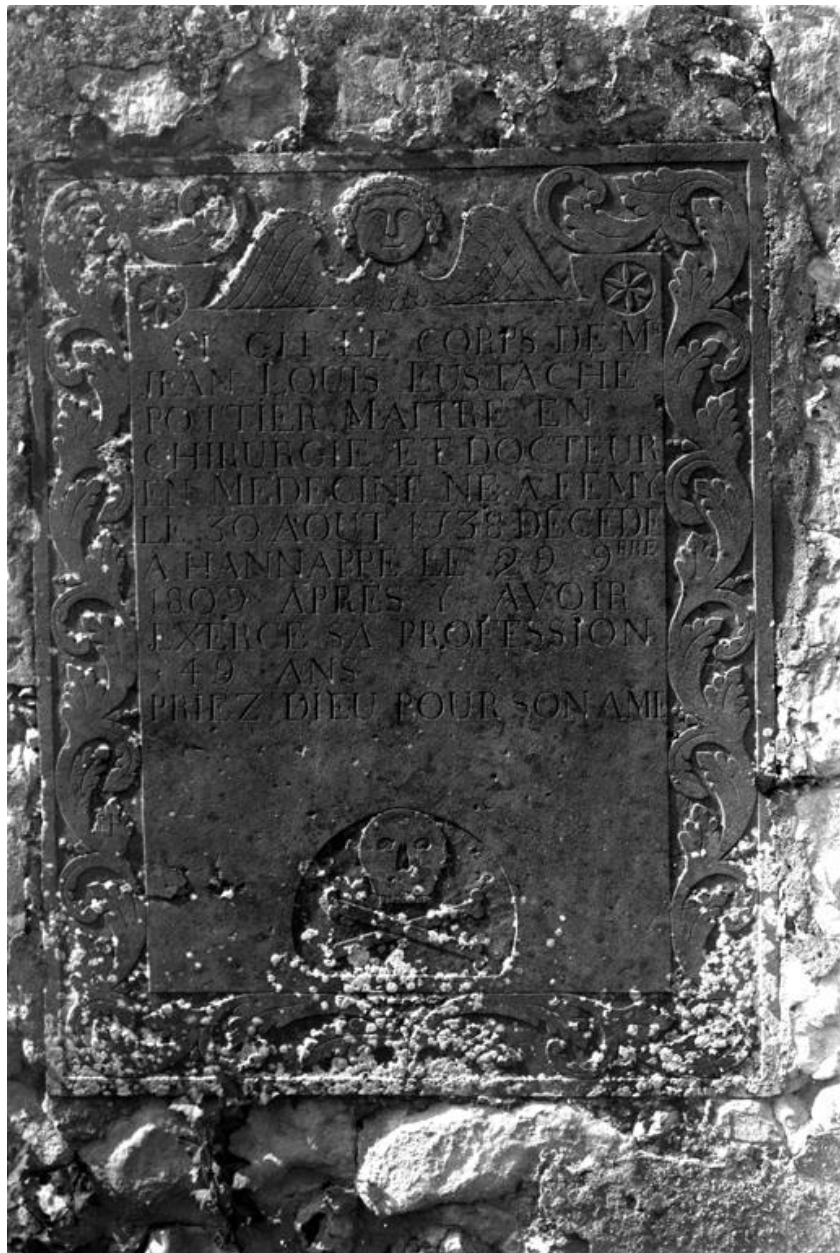 CI GIT LE CORPS DE Mr
JEAN LOUIS EUSTACHE
POTTIER MAITRE EN
CHIRURGIE ET DOCTEUR
EN MEDECINE NE A FEMY
LE 30 AOUT 1738 DECEDE
A HANNAPPE LE 29 9BRE
1809 APRES Y AVOIR
EXERCE SA PROFESSION
49 ANS
PRIEZ DIEU POUR SON AME